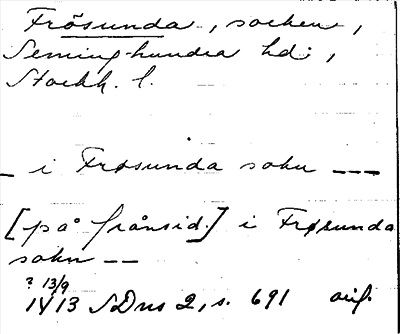 Frösunda, socken,
Seminghundra hd:,
Stockh. l.
_ i Frøsunda sokn ---
[på frånsid.] i Frøsunda
sokn --
? 13/9
14/13 SDns 2, s. 691 orig.